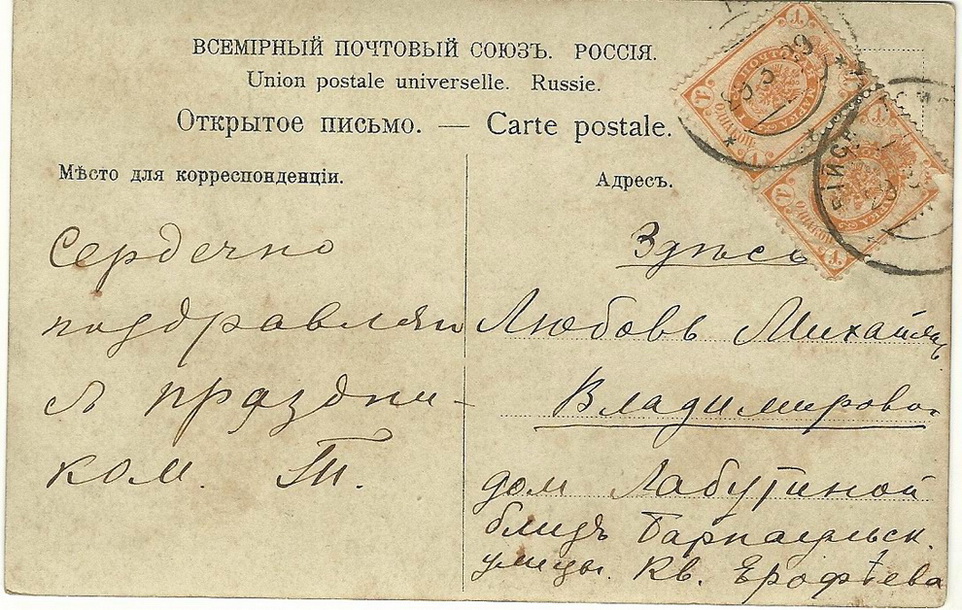 ВСЕМІРНЫЙ ПОЧТОВЫЙ СОЮЗЪ. РОССІЯ.
Union postale universelle. Russie.
Открытое письмо. — Carte postale.
Мѣсто для корреспонденціи.
Сердечно
поздравляю
съ праздни-
ком. Т.
Адресъ.
Здѣсь
Любовь
Владимирово
дом Лабутиной
близъ Барнаульск.
улицы. Кв. Ерофѣева
БІЙСК